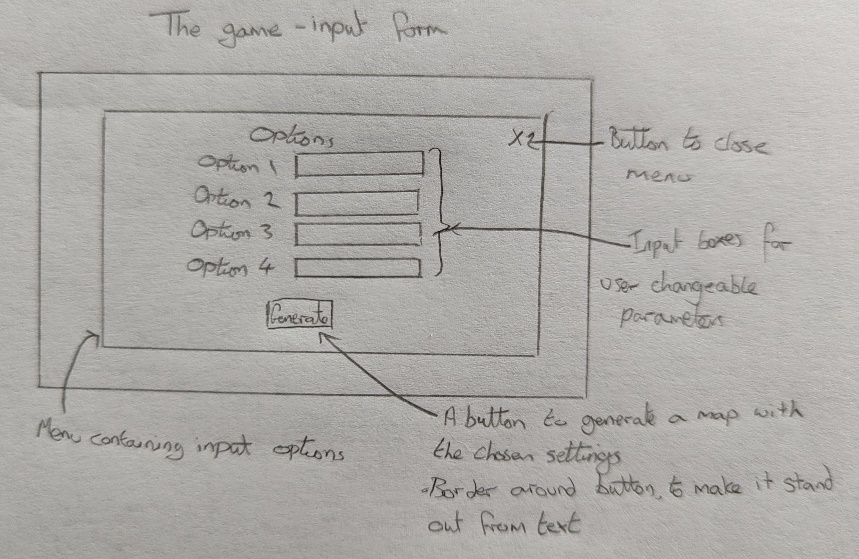 The game - input form
Options
X
Option 1
Option 2
Option 3
Option 4
Generate
Button to close
menu
Input boxes for
user changeable
parameters
Menu containing input options
A button to generate a map with
the chosen settings
-Border around button, to make it stand
out from text